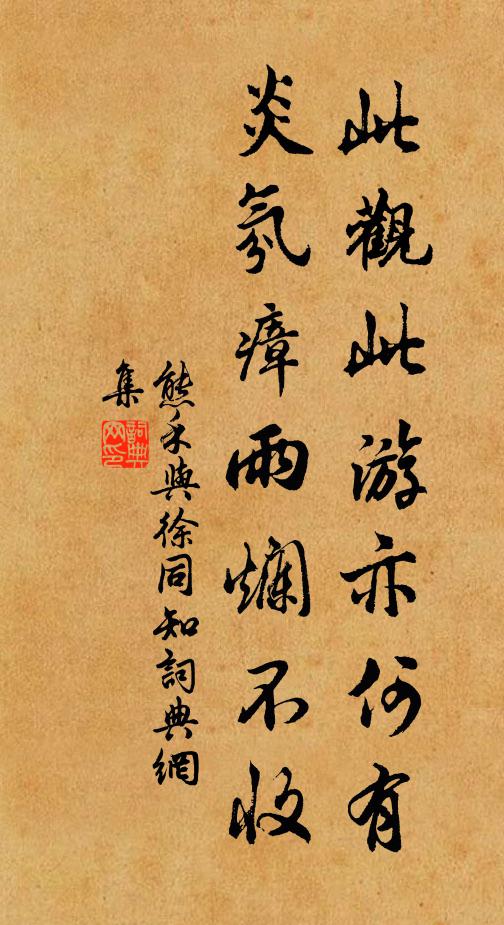 此觀此游亦何有
炎氛瘴雨爛不收
熊禾與徐同知詞典網
集
詞典網印